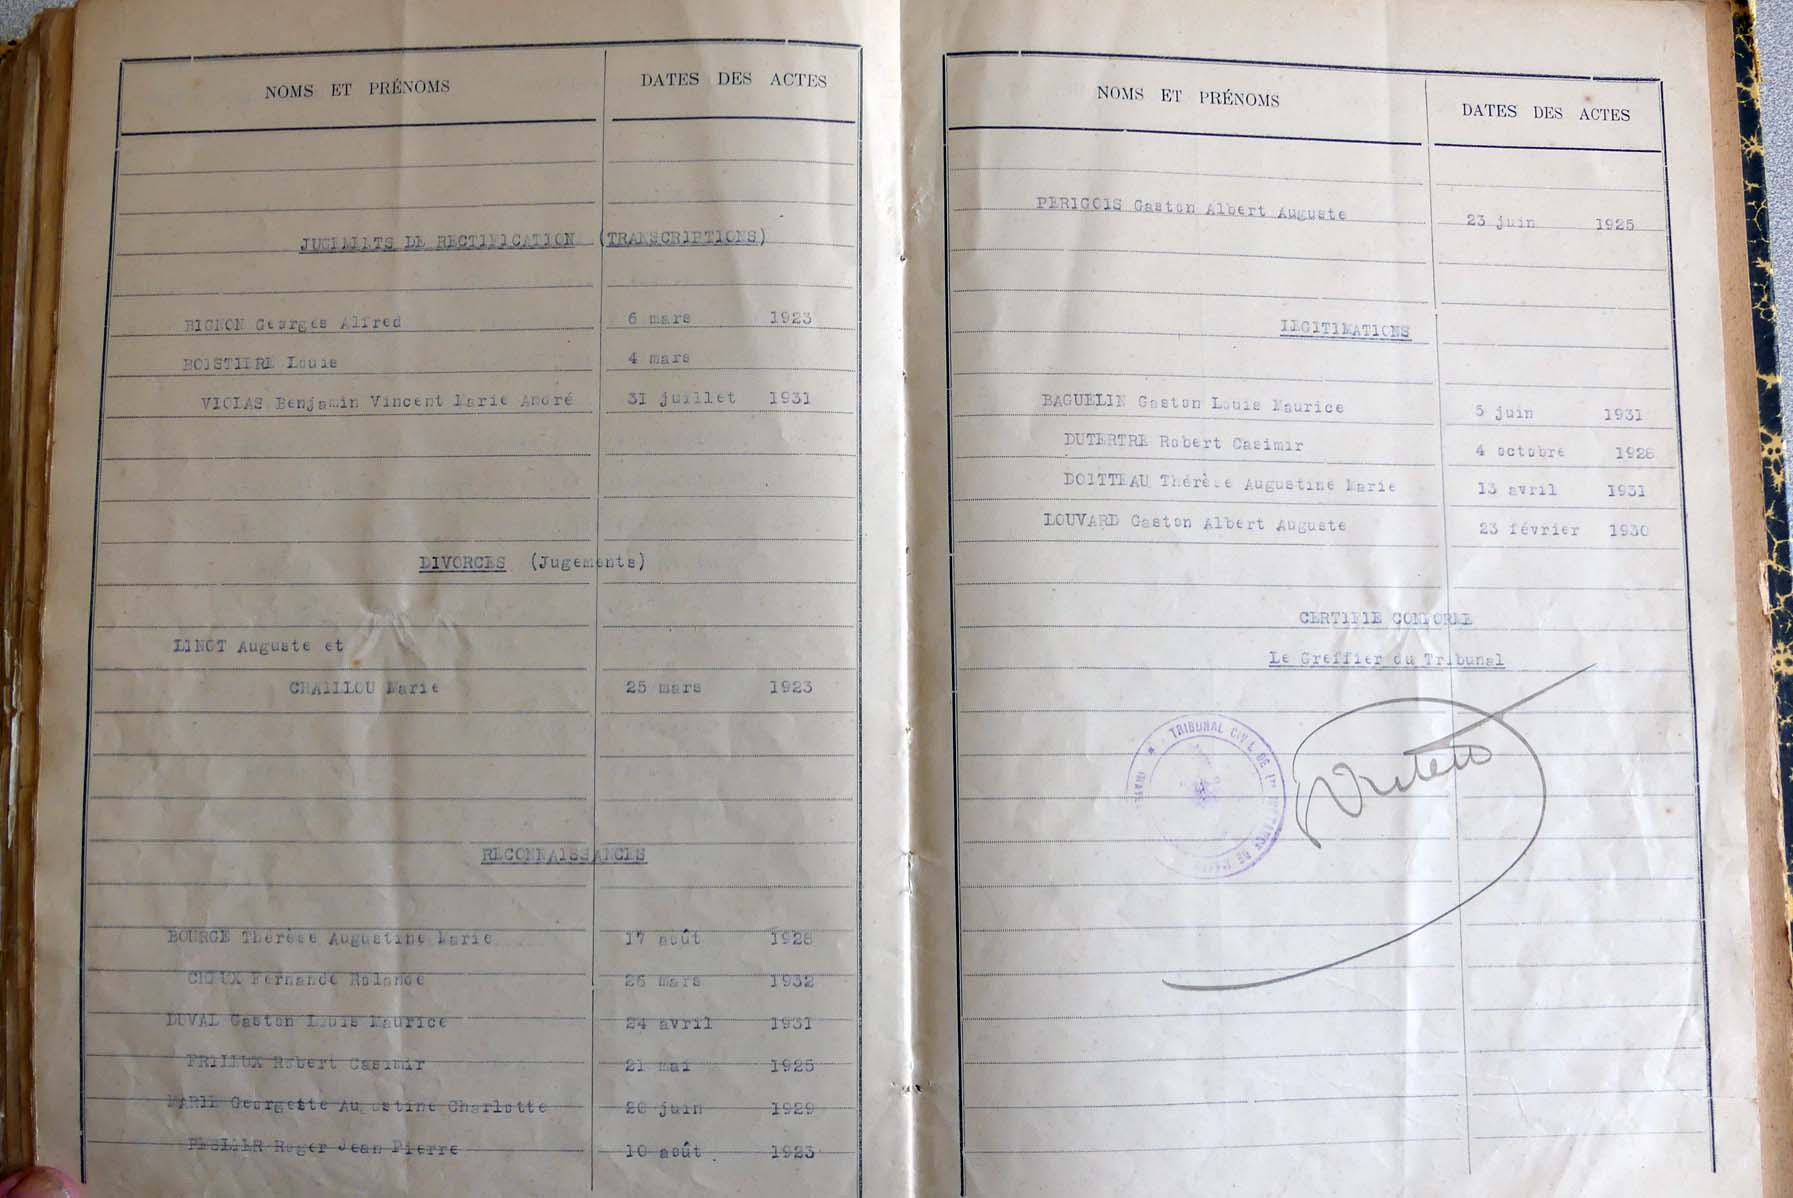 NOMS ET PRÉNOMS DATES DES ACTES
JUGEMENTS DE RECTIFICATION (TRANSCRIPTIONS)
BIGNON Georges Alfred 6 mars 1923
BOISTIERE Louis 4 mars
VIOLAS Benjamin Vincent Marie André 31 juillet 1931
DIVORCES (Jugements)
LINOT Auguste et
CHAILLOU Marie 25 mars 1923
RECONNAISSANCES
BOURGE Thérèse Augustine Marie 17 août 1928
CHEUX Fernande Rolande 26 mars 1932
DUVAL Gaston Louis Maurice 24 avril 1931
Robert Casimir 21 mai 1925
MARIE Georgette Augustine Charlotte juin 1929
Roger Jean Pierre 10 août 1923
NOMS ET PRÉNOMS DATES DES ACTES
PERIGOIS Gaston Albert Auguste 23 juin 1925
LEGITIMATIONS
BAGUELIN Gaston Louis Maurice 5 juin 1931
DUTERTRE Robert Casimir 4 octobre
DOITTEAU Thérèse Augustine Marie 13 avril 1931
LOUVARD Gaston Albert Auguste 23 février 1930
CERTIFIE CONFORME
Le Greffier du Tribunal
TRIBUNAL CIVIL DE 1re